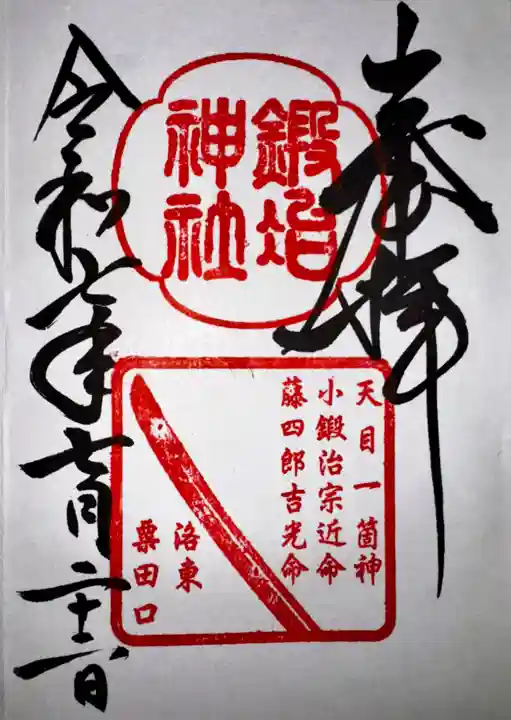 奉拝
鍛冶
神社
天目一箇神
小鍛冶宗近命
藤四郎吉光命
洛東
粟田口
令和七年七月二十二日